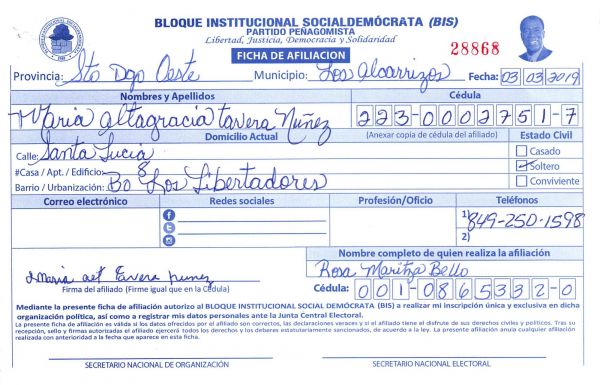 BLOQUE INSTITUCIONAL SOCIALDEMÓCRATA (BIS)
PARTIDO PEÑAGOMISTA
Libertad, Justicia, Democracia y Solidaridad
FICHA DE AFILIACION
28868
Provincia: Sto Dgo Oeste Municipio: Los Alcarrizos Fecha: 03 03 2019
Nombres y Apellidos Cédula
Maria Altagracia Tavera Nuñez 223-0002751-7
Domicilio Actual (Anexar copia de cédula del afiliado) Estado Civil
Calle: Santa Lucia Casado
#Casa / Apt. / Edificio: 8 Soltero
Barrio / Urbanización: Bo Los Libertadores Conviviente
Correo electrónico Redes sociales Profesión/Oficio Teléfonos
1) 849-250-1598
2)
Nombre completo de quien realiza la afiliación
Maria alt Tavera nunez Rosa Maritza Bello
Firma del afiliado (Firme igual que en la Cédula) Cédula: 001-0865332-0
Mediante la presente ficha de afiliación autorizo al BLOQUE INSTITUCIONAL SOCIAL DEMÓCRATA (BIS) a realizar mi inscripción única y exclusiva en dicha
organización política, así como a registrar mis datos personales ante la Junta Central Electoral.
La presente ficha de afiliación es válida si los datos ofrecidos por el afiliado son correctos, las declaraciones veraces y si el afiliado tiene el disfrute de sus derechos civiles y políticos. Tras su
recepción, sello y firmas autorizadas el afiliado ejercerá todos los derechos y los deberes estatutariamente sancionados, de acuerdo a la ley. La presente afiliación anula cualquier afiliación
realizada con anterioridad a la fecha que aparece en esta ficha.
SECRETARIO NACIONAL DE ORGANIZACIÓN SECRETARIO NACIONAL ELECTORAL